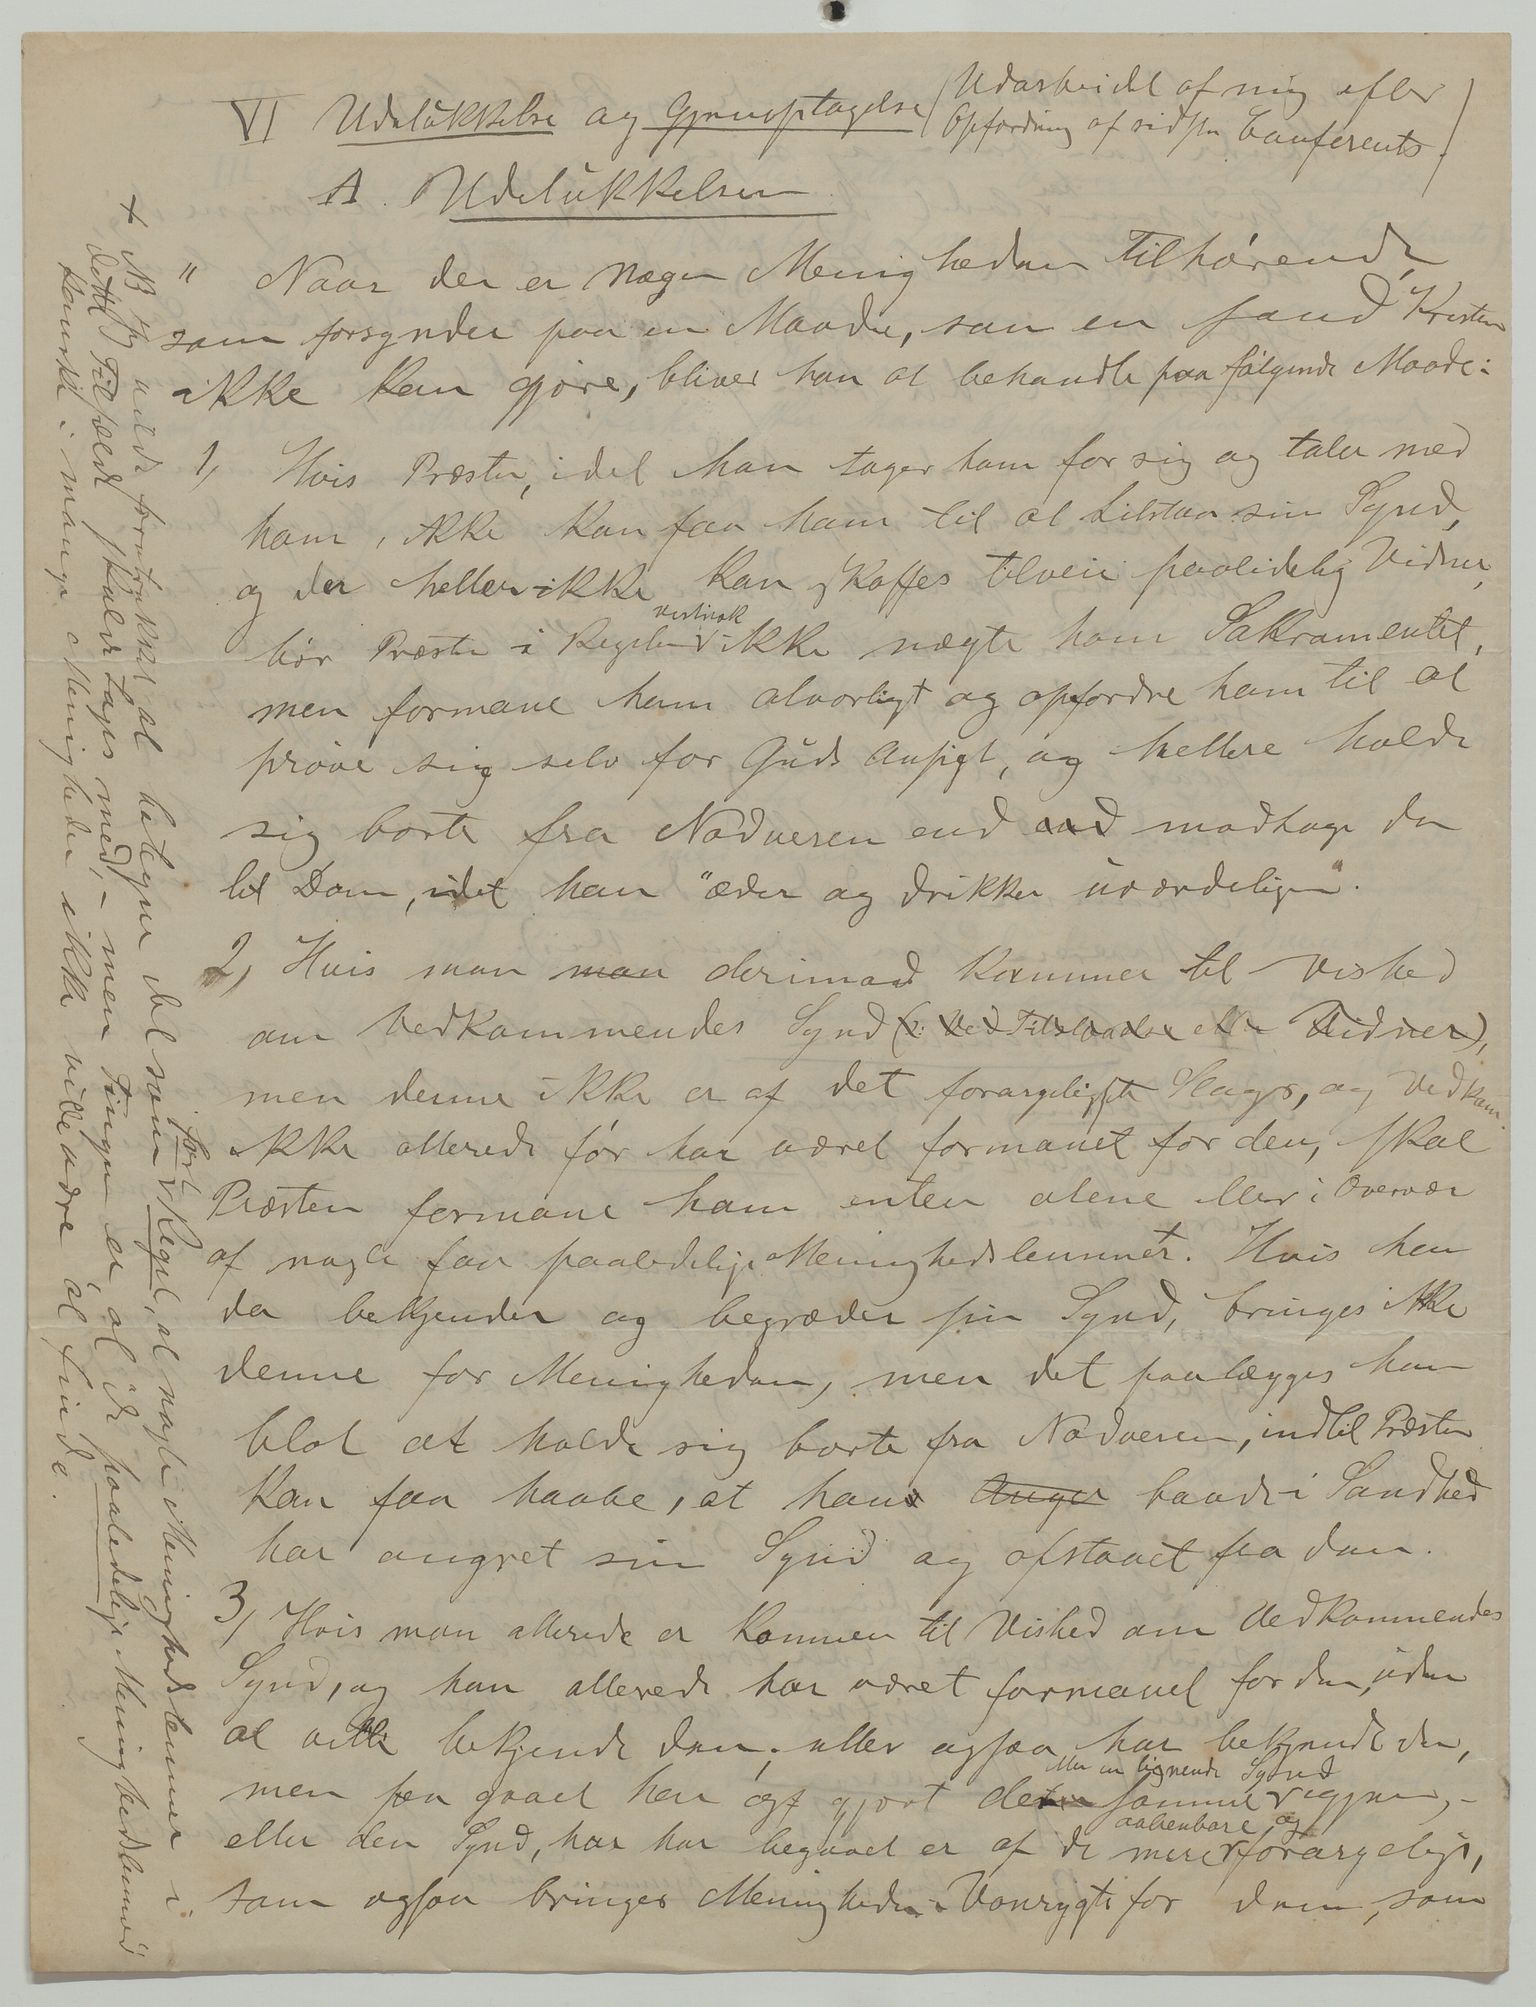 VI Udelukkelse og Gjenoptagelse (Udarbeidet af mig efter
Opfordring af sidste Conferents.)
A. Udelukkelsen
" Naar der er nogen Menigheden Tilhørende,
som forsynder paa en Maade, som en sand Kristen
ikke kan gjøre, bliver han at behandle paa følgende Maade:
1, Hvis Præsten, idet han tager ham for sig og taler med
ham, ikke kan faa ham til at tilstaa sin Synd,
og der heller ikke kan skaffes tilveie paalidelig Vidner,
bør Præsten i Regelen ikke nægte ham Sakramentet,
men formane ham alvorligt og opfordre ham til at
prøve sig selv for Guds Ansigt, og hellere holde
sig borte fra Nadveren end end modtage den
til Dom, idet han "æder og drikker uværdeligen".
2, Hvis man man derimod kommer til Vished
om Vedkommendes Synd (ɔ: ved Tilstaaelse eller Vidner),
men denne ikke er af det forargeligste Slags, og Vedkom.
ikke allerede før har været formanet for den, skal
Præsten formane ham enten alene eller i Overvær
af nogle faa paalidelige Menighedslemmer. Hvis han
da bekjender og begræder sin Synd, bringes ikke
denne for Menigheden, men det paalægges ham
blot at holde sig borte fra Nadveren, indtil Præsten
kan faa Haabe, at hans Anger baade i Sandhed
har angret sin Synd og afstaaet fra den.
3, Hvis man allerede er kommen til Vished om Vedkommendes
Synd, og han allerede har været formanet for den, uden
at ville bekjende den, eller ogsaa har bekjendt den,
eller en lignende Synd
men paa gaaet hen og gjort den samme igjen, -
aabenbare og
eller den Synd, han har begaaet er af de mere forargelige,
som ogsaa bringer Menigheden i Vanrygte for dem, som
+ NB Jeg vilde foretrække at betegne det som Regel, at nogle Menighedslemmer i
for
dette Tilfælde skulde tages med, - men Tingen er, at de paalidelige Menighedslemmer
kanske i mange Menigheder ikke ville være at finde.